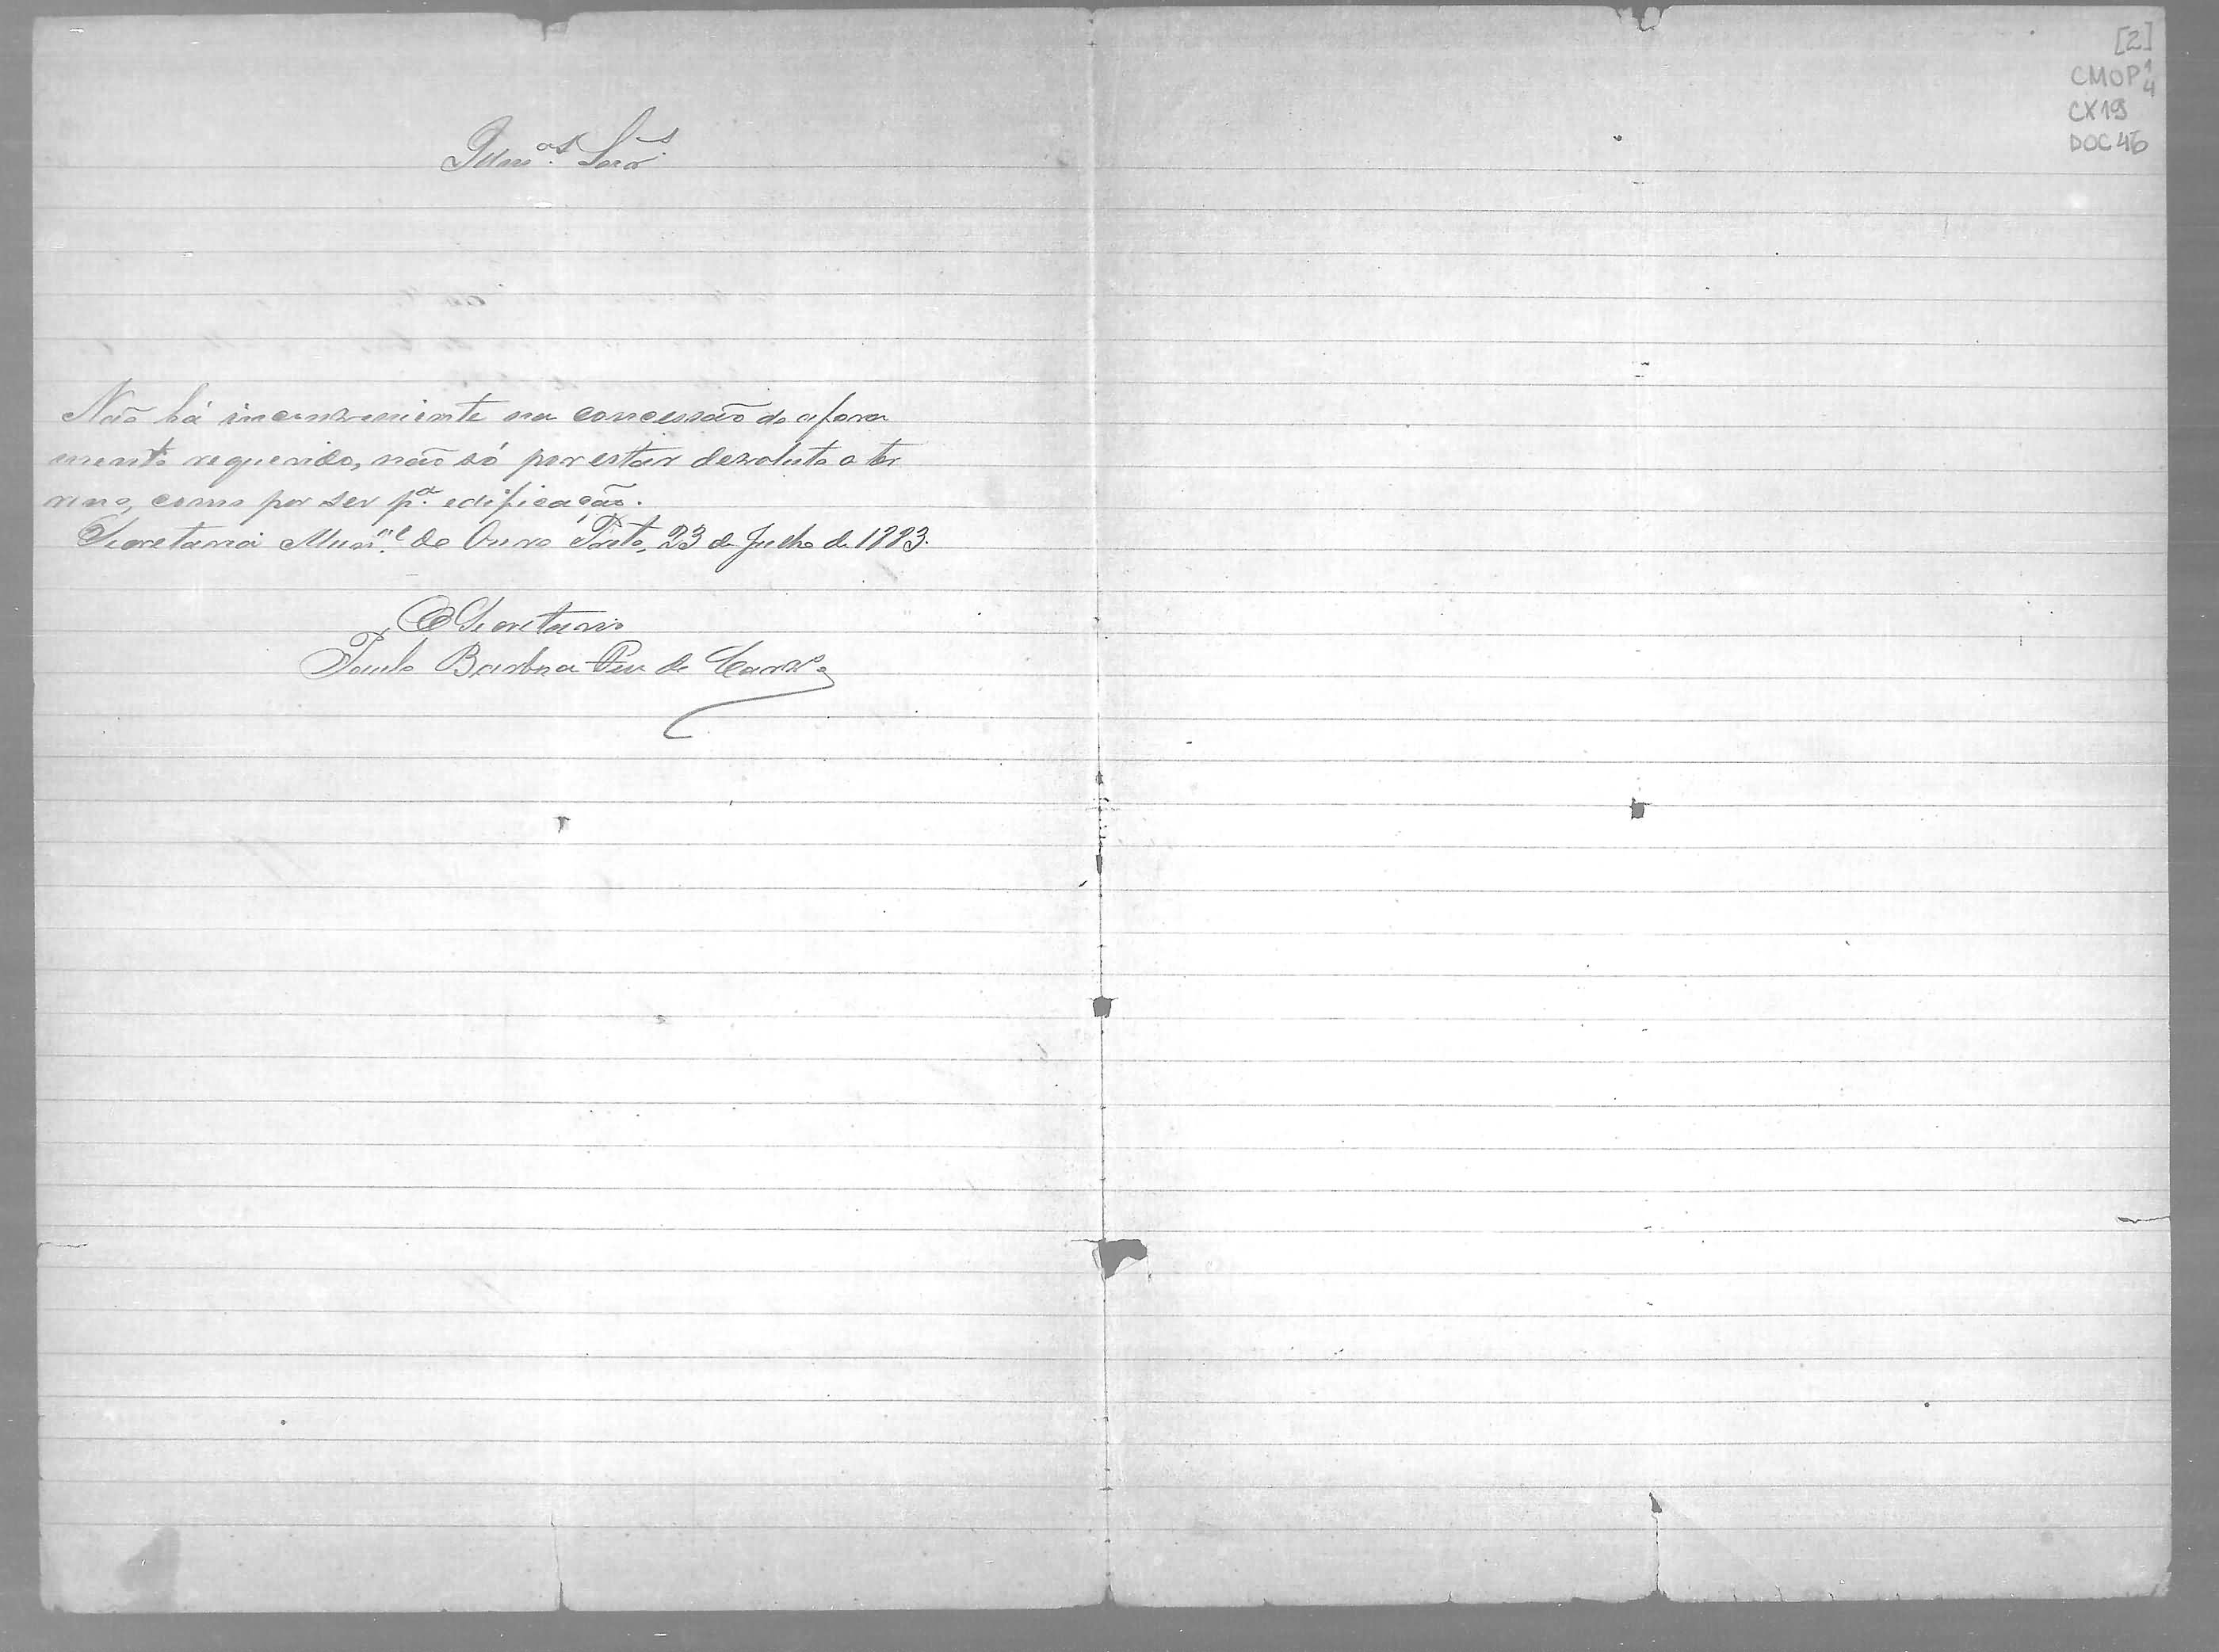 [2]
CMOP 1/4
CX19
DOC 46
Illm.os Snr.s
Não há inconveniente na concessão do afora
mento requerido, não só por estar devoluto o ter
reno, como por ser p.a edificação.
Secretaria Mun.al de Ouro Preto, 23 de Julho de 1883.
O Secretario
Paulo Barboza de